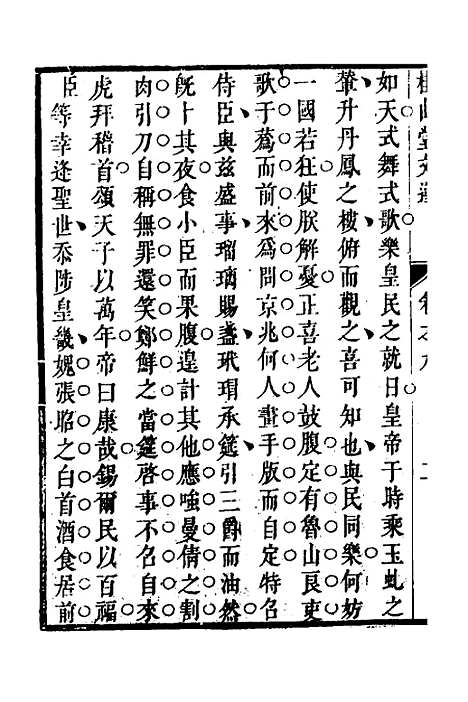 如天式舞式歌樂皇民之就日皇帝于時乘玉虬之
輦升丹鳳之樓俯而觀之喜可知也與民同樂何妨
一國若狂使朕解憂正喜老人鼓腹定有魯山良吏
歌于蒍而前來爲問京兆何人畫手版而自定特名
侍臣與兹盛事瑠璃賜盞玳瑁承筵引三爵而油然
旣十其夜食小臣而果腹遑計其他應嗤曼倩之割
肉引刀自稱無罪還笑鄭鮮之當筵啓事不名自來
虎拜稽首頌天子以萬年帝曰康哉錫爾民以百福
臣等幸逢聖世忝陟皇畿媿張昭之白首酒食居前